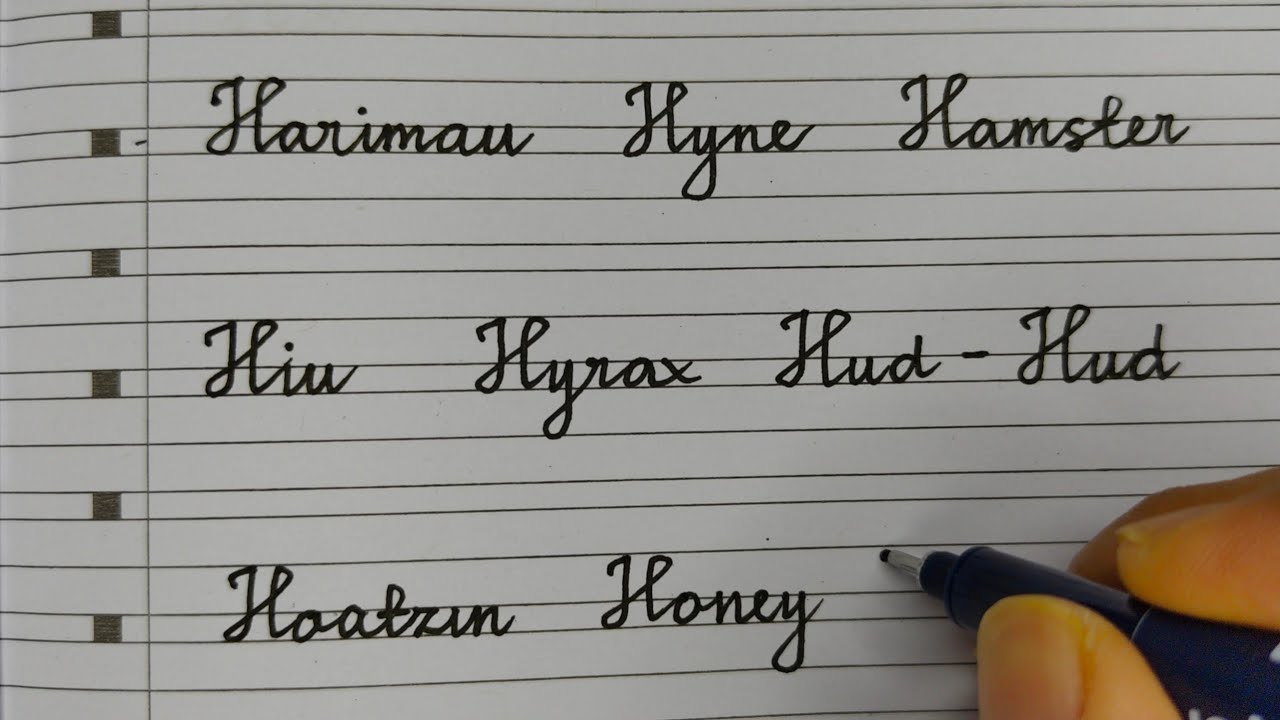 Harimau Hyne Hamster
Hiu Hyrax Hud - Hud
Hoatzin Honey